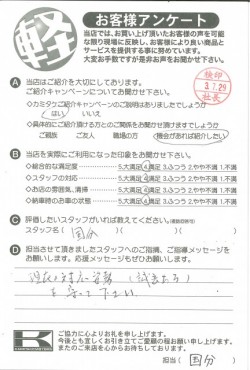 軽
お客様アンケート
当店では、お買い上げ頂いたお客様の声を可能
な限り現場に反映し、お客様により良い商品と
サービスを提供する事に努めています。
大変お手数ですが是非お声をお聞かせ下さい。
検印
3.7.29
社長
A 当店はご紹介を大切にしております。
ご紹介キャンペーンについてお聞かせ下さい。
◇カミタケご紹介キャンペーンのご説明はありましたでしょうか
はい いいえ
◇具体的にご紹介頂ける方とのご関係をお聞かせ頂けますでしょうか
ご親族 ご友人 職場の方 機会があれば紹介したい
B 当店を実際にご利用になった印象をお聞かせ下さい。
◇総合的な満足度 5.大満足 4.満足 3.ふつう 2.やや不満 1.不満
◇スタッフの対応 5.大満足 4.満足 3.ふつう 2.やや不満 1.不満
◇お店の雰囲気、清掃 5.大満足 4.満足 3.ふつう 2.やや不満 1.不満
◇納車時のお車の状態 5.大満足 4.満足 3.ふつう 2.やや不満 1.不満
C 評価したいスタッフがいれば教えてください。
スタッフ名( 国分 )
D 担当させて頂きましたスタッフへのご指摘、ご指導メッセージを
お願いします。応援メッセージもぜひお願いします。
現在の対応姿勢
を守って下さい
K
ご協力に心よりお礼を申し上げます。
今後とも宜しくお引き立てご愛顧の程お願い申し上げます。
またのご来店を心からお待ちしております。
担当( 国分 )